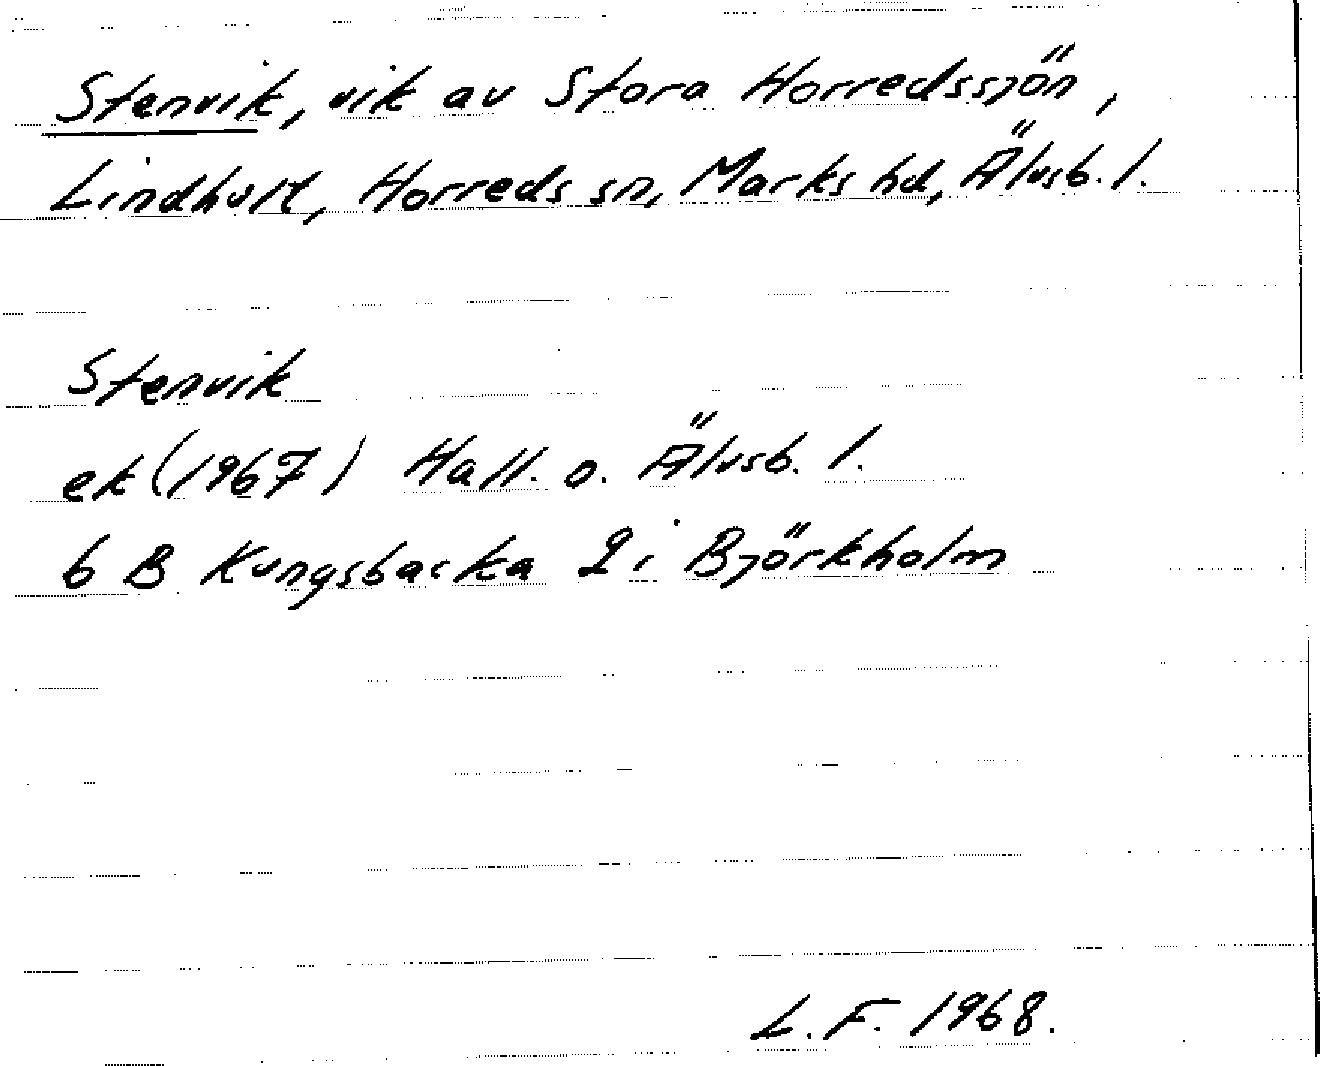 Stenvik, vik av Stora Horredssjön,
Lindhult, Horreds sn, Marks hd, Älvsb. l.
Stenvik
ek (1967) Hall. o. Älvsb. l.
6 B Kungsbacka 2 i Björkholm
L. F. 1968.